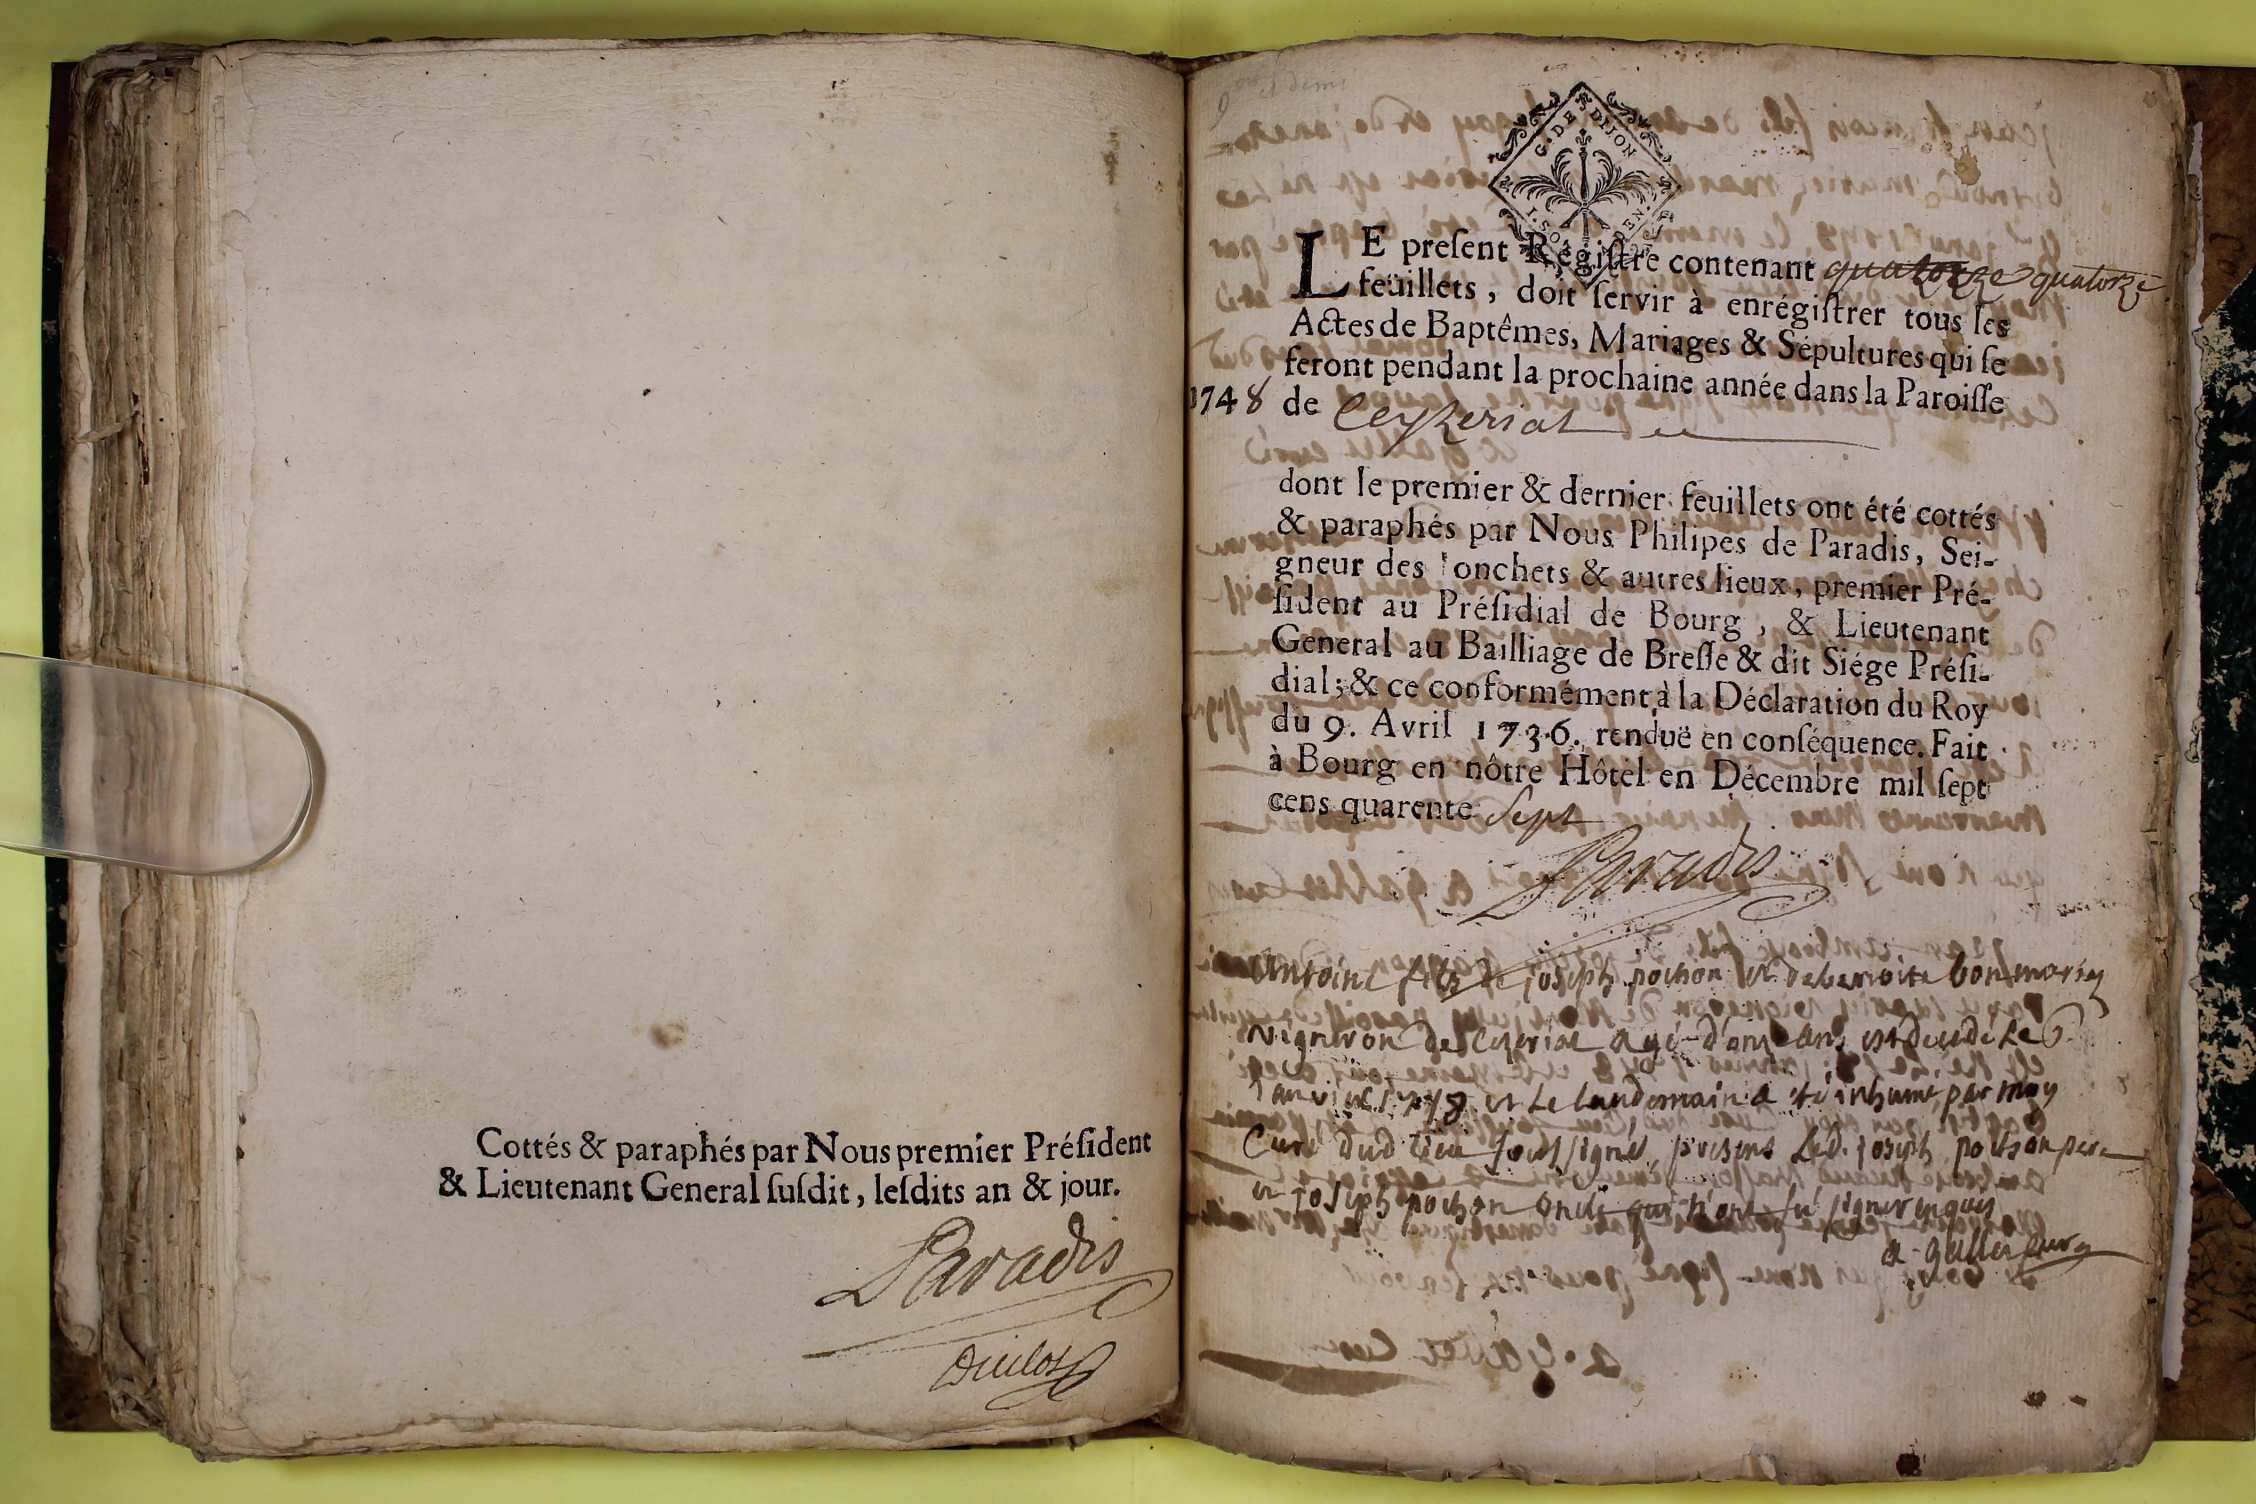 Cottés & paraphés par Nous premier Préſident
& Lieutenant General ſuſdit, leſdits an & jour.
Paradis
G. DE DIJON
LE preſent Régiſtre contenant quatorze quatorze
feüillets, doit ſervir à enrégiſtrer tous les
Actes de Baptêmes, Mariages & Sépultures qui ſe
feront pendant la prochaine année dans la Paroiſſe
1748 de Ceyzeriat
dont le premier & dernier feuillets ont été cottés
& paraphés par Nous Philipes de Paradis, Sei-
gneur des onchets & autres lieux, premier Pré-
ſident au Préſidial de Bourg, & Lieutenant
General au Bailliage de Breſſe & dit Siége Préſi-
dial; & ce conformément à la Déclaration du Roy
du 9. Avril 1736. renduë en conſéquence. Fait
à Bourg en nôtre Hôtel en Décembre mil ſept
cens quarente Sept
Paradis
Antoine fils de joseph pochon et de benoite bon
vigneron de Ceseriat agé d'onze ans est decedé le
janvier 1748 et le landemain a été inhumé par moy
Curé dud lieu soussigné presens led. joseph pochon pere
et joseph pochon oncle qui n'ont sú signer enquis
a. gallet curé